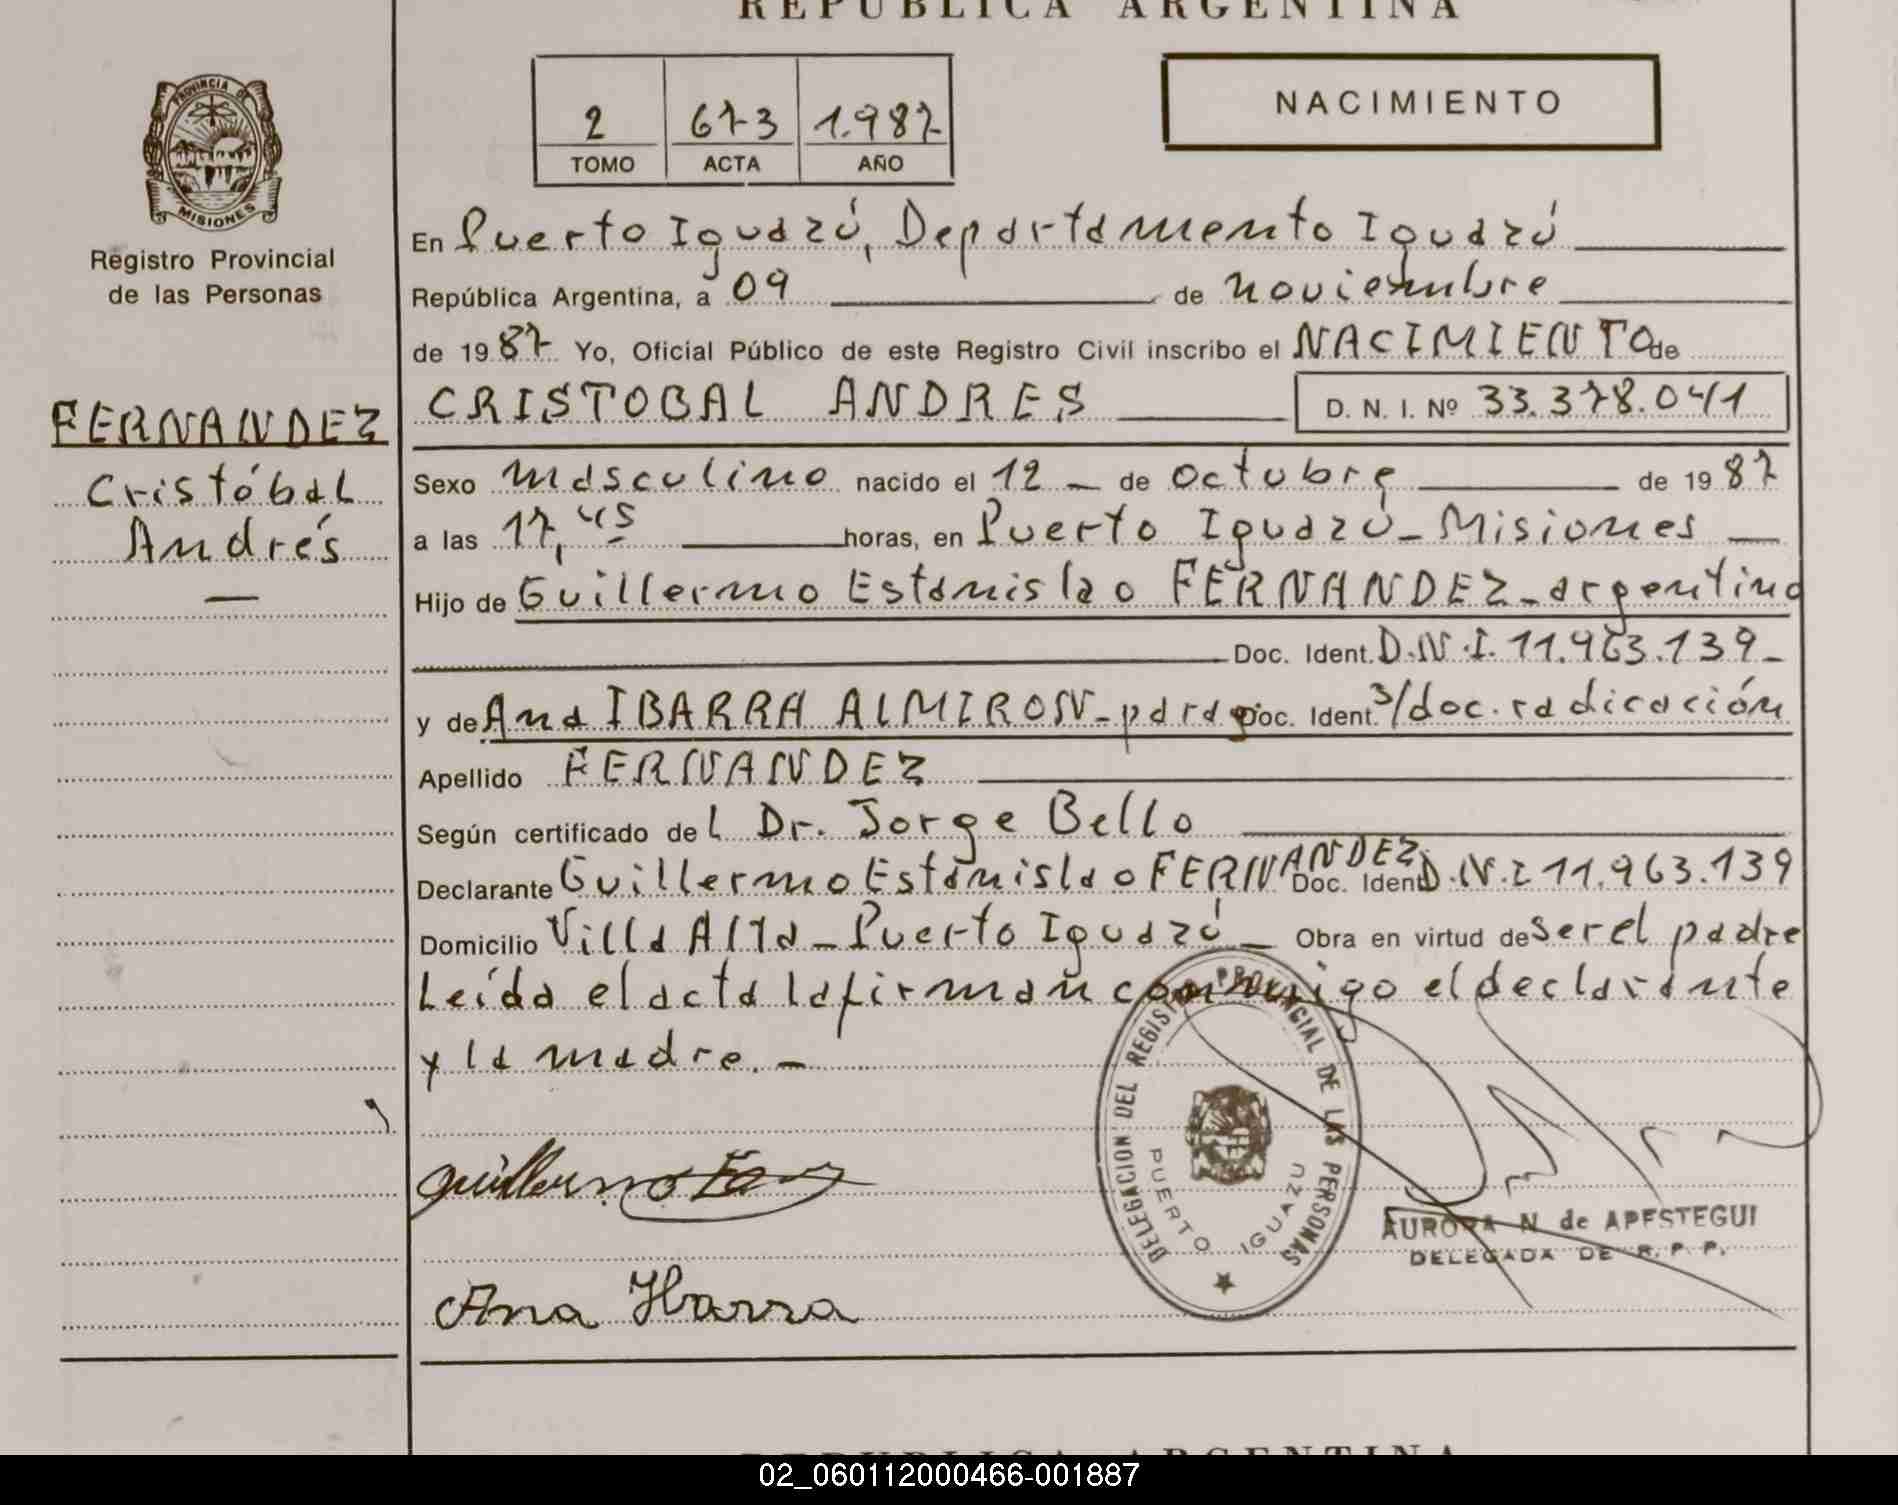 REPUBLICA ARGENTINA
PROVINCIA DE
MISIONES
Registro Provincial
de las Personas
2 673 1.987
TOMO ACTA AÑO
NACIMIENTO
En Puerto Iguazú, Departamento Iguazú
República Argentina, a 09 de noviembre
de 1987 Yo, Oficial Público de este Registro Civil inscribo el NACIMIENTO de
CRISTOBAL ANDRES D. N. I. Nº 33.378.041
FERNANDEZ
Cristóbal
Andrés
—
Sexo masculino nacido el 12 — de octubre de 1987
a las 17,45 horas, en Puerto Iguazú - Misiones —
Hijo de Guillermo Estanislao FERNANDEZ - argentino
Doc. Ident. D.N.I. 11.963.139 -
y de Ana IBARRA ALMIRON - parag. Doc. Ident. s/doc. radicación
Apellido FERNANDEZ
Según certificado del Dr. Jorge Bello
Declarante Guillermo Estanislao FERNANDEZ Doc. Ident. D.N.I 11.963.139
Domicilio Villa Alta - Puerto Iguazú — Obra en virtud de ser el padre
Leída el acta la firman conmigo el declarante
y la madre. -
Guillermo
Ana Ibarra
DELEGACION DEL REGISTRO PROVINCIAL DE LAS PERSONAS
PUERTO IGUAZU
AURORA N. de APESTEGUI
DELEGADA DE R. P. P.
REPUBLICA ARGENTINA
02_060112000466-001887